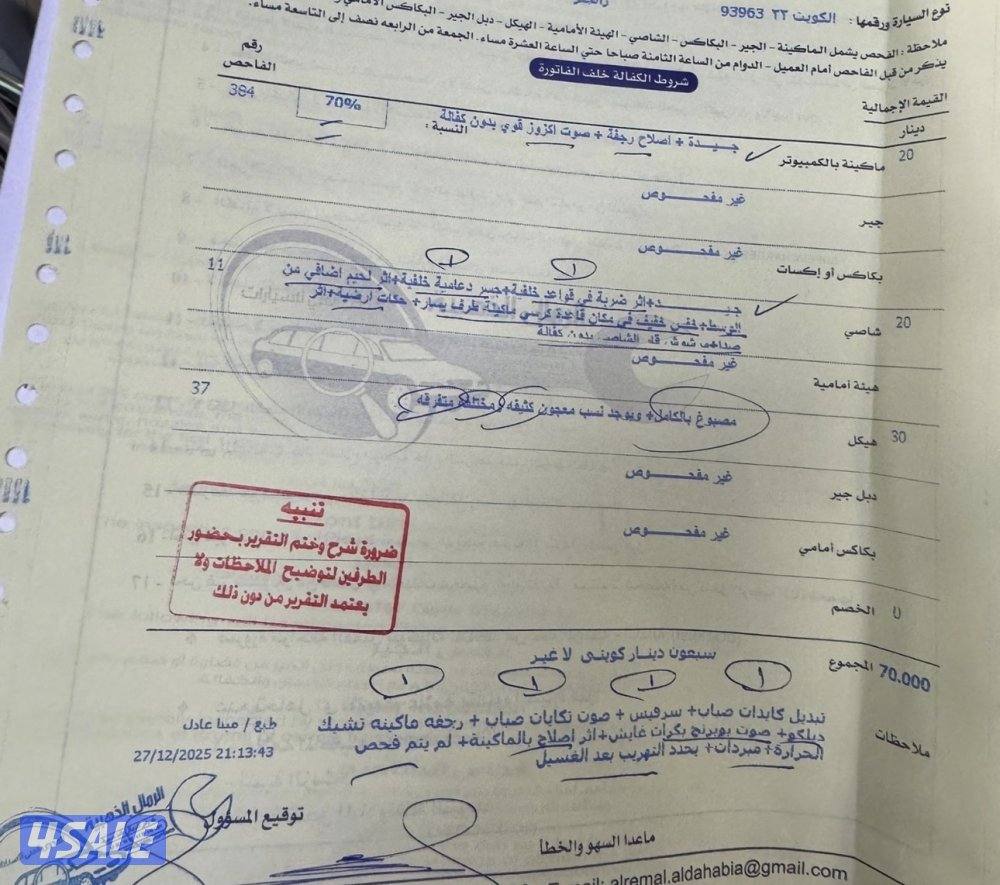 نوع السيارة ورقمها : الكويت ٢٢ 93963
ملاحظة : الفحص يشمل الماكينة - الجير - البكاكس - الشاصي - الهيئة الأمامية - الهيكل - دبل الجير - البكاكس الأمامي
يذكر من قبل الفاحص أمام العميل - الدوام من الساعة الثامنة صباحا حتى الساعة العشرة مساء. الجمعة من الرابعه نصف إلى التاسعة مساء.
شروط الكفالة خلف الفاتورة
القيمة الإجمالية
دينار
رقم الفاحص
20 ماكينة بالكمبيوتر جيـــدة + اصلاح رجفة + صوت اكزوز قوي بدون كفالة النسبة : 70% 384
جير غير مفحـــوص
بكاكس أو إكسات غير مفحـــوص
20 شاصي جيـــد+اثر ضربة في قواعد خلفية+جسر دعامية خلفية+اثر لحيم اضافي من 11
الوسط+خفس خفيف في مكان قاعدة كرسي ماكينة طرف يسار+ حكات ارضية+اثر
بدون كفالة
هيئة أمامية غير مفحـــوص
30 هيكل مصبوغ بالكامل+ ويوجد نسب معجون كثيفه ومختلفه متفرقه 37
دبل جير غير مفحـــوص
بكاكس أمامي غير مفحـــوص
0 الخصم
تنبيه
ضرورة شرح وختم التقرير بحضور
الطرفين لتوضيح الملاحظات ولا
يعتمد التقرير من دون ذلك
70.000 المجموع سبعون دينار كويتى لا غير
ملاحظات تبديل كابدات صباب+ سرفيس + صوت تكايات صباب + رجفه ماكينه تشيك
ديلكو+ صوت بوبرنج بكرات غايش+اثر اصلاح بالماكينة+ لم يتم فحص
الحرارة+ مبردات+ يحدد التهريب بعد الغسيل
طبع / مينا عادل
27/12/2025 21:13:43
توقيع المسؤول
ماعدا السهو والخطأ
الرمال الذهبية
4SALE
E-mail: alremal.aldahabia@gmail.com